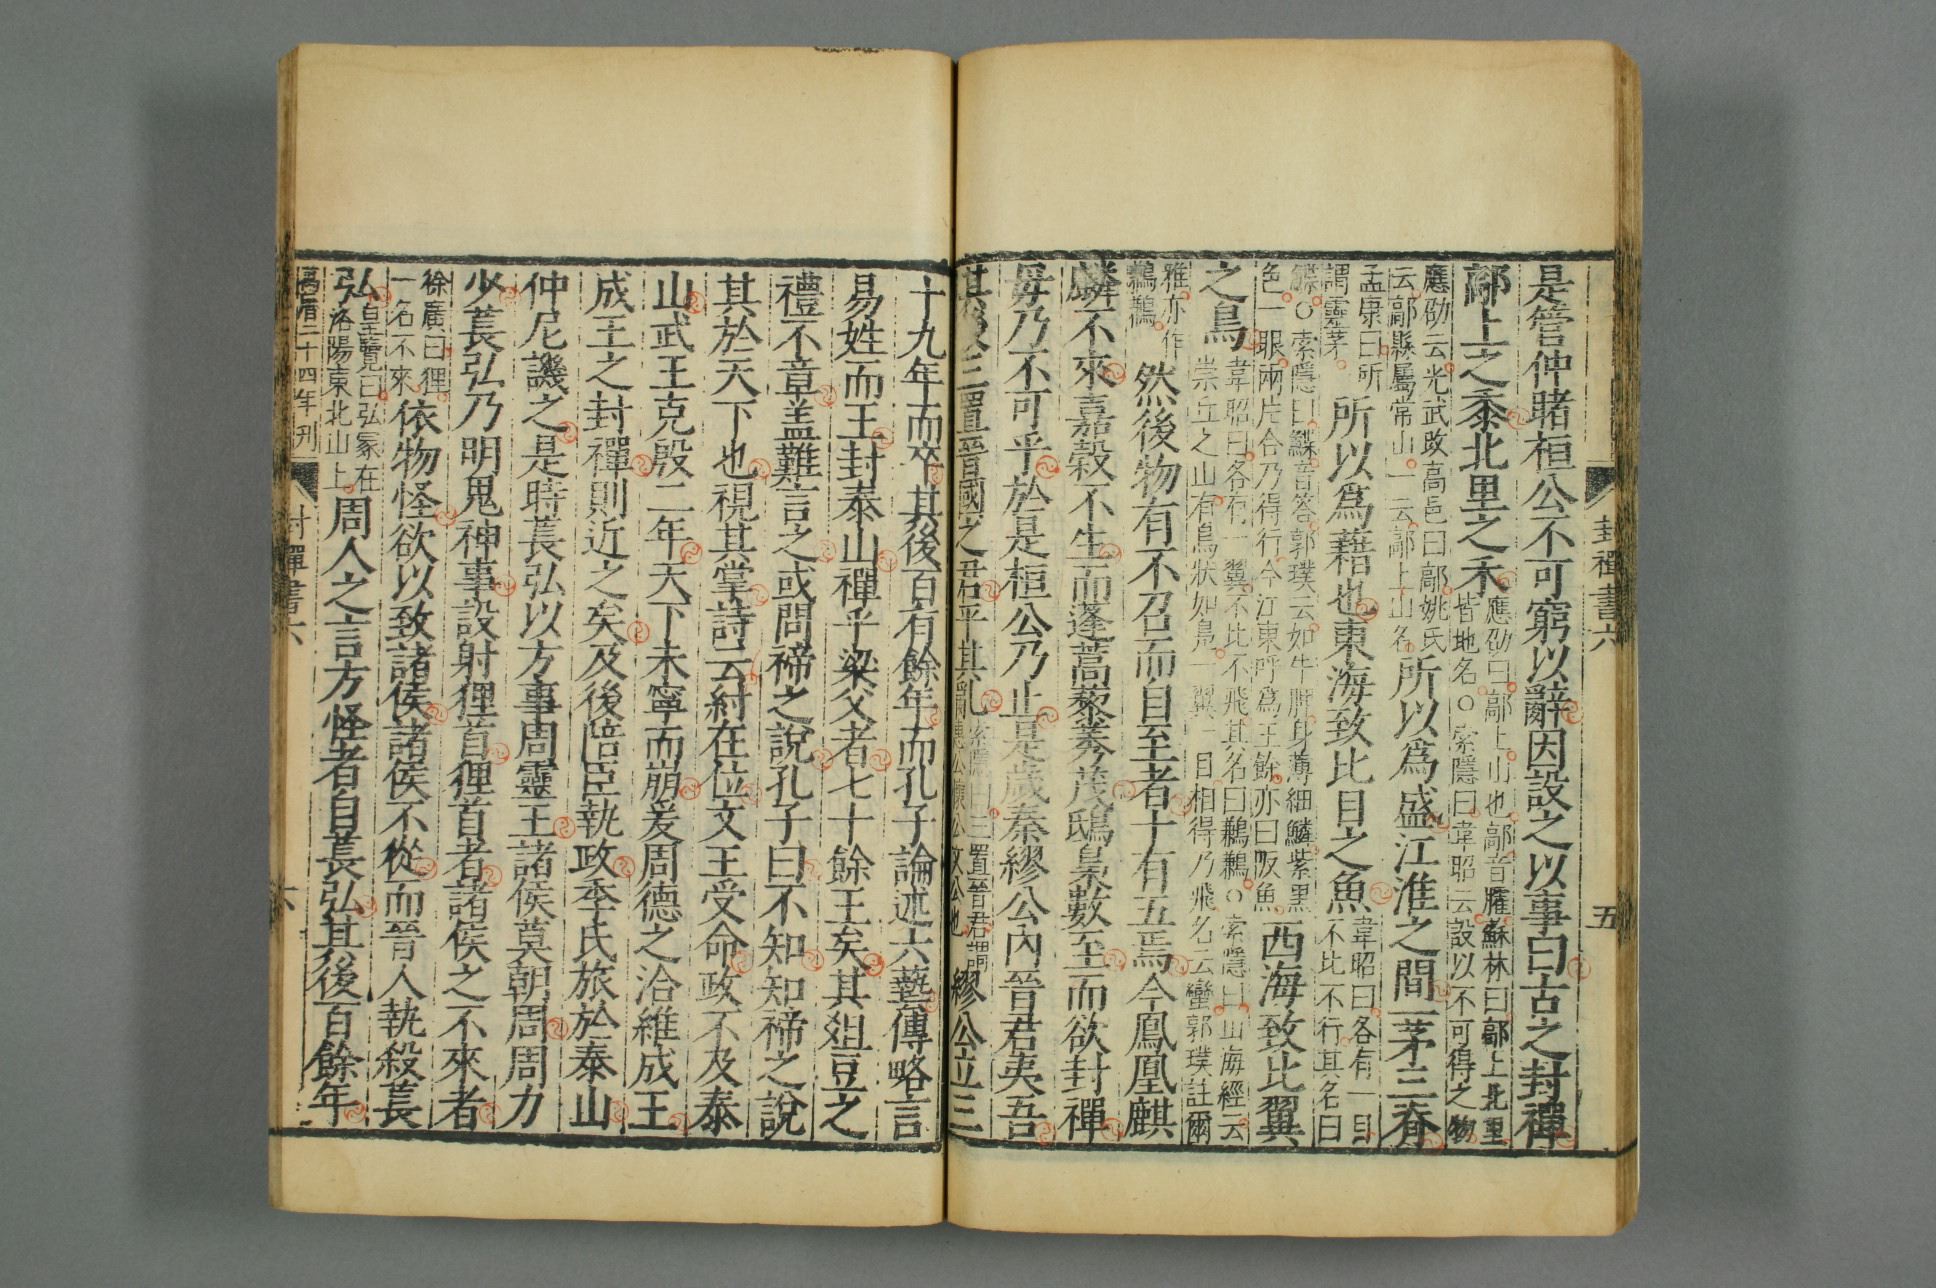 封禪書六 五
是管仲睹桓公不可窮以辭因設之以事曰古之封禪
鄗上之黍北里之禾應劭曰鄗上山也鄗音臛蘇林曰鄗上北里皆地名○索隱曰韋昭云設以不可得之物
應劭云光武改高邑曰鄗姚氏云鄗縣屬常山一云鄗上山名所以爲盛江淮之間一茅三脊
孟康曰所謂靈茅所以爲藉也東海致比目之魚韋昭曰各有一目不比不行其名曰
鰈○索隱曰鰈音荅郭璞云如牛脾身薄細鱗紫黑色一眼兩片合乃得行今江東呼爲王餘亦曰版魚西海致比翼
之鳥韋昭曰各有一翼不比不飛其名曰鶼鶼○索隱曰山海經云崇丘之山有鳥狀如鳧一翼一目相得乃飛名云蠻郭璞註爾
雅亦作鶼鶼然後物有不召而自至者十有五焉今鳳凰麒
麟不來嘉穀不生而蓬蒿藜莠茂鴟梟數至而欲封禪
毋乃不可乎於是桓公乃止是歲秦繆公內晉君夷吾
其後三置晉國之君平其亂索隱曰三置晉君謂惠公懷公文公也繆公立三
十九年而卒其後百有餘年而孔子論述六藝傳略言
易姓而王封泰山禪乎梁父者七十餘王矣其俎豆之
禮不章蓋難言之或問禘之說孔子曰不知知禘之說
其於天下也視其掌詩云紂在位文王受命政不及泰
山武王克殷二年天下未寧而崩爰周德之洽維成王
成王之封禪則近之矣及後陪臣執政季氏旅於泰山
仲尼譏之是時萇弘以方事周靈王諸侯莫朝周周力
少萇弘乃明鬼神事設射貍首貍首者諸侯之不來者
徐廣曰貍一名不來依物怪欲以致諸侯諸侯不從而晉人執殺萇
弘皇覽曰弘冢在洛陽東北山上周人之言方怪者自萇弘其後百餘年
萬曆二十四年刊 封禪書六 六